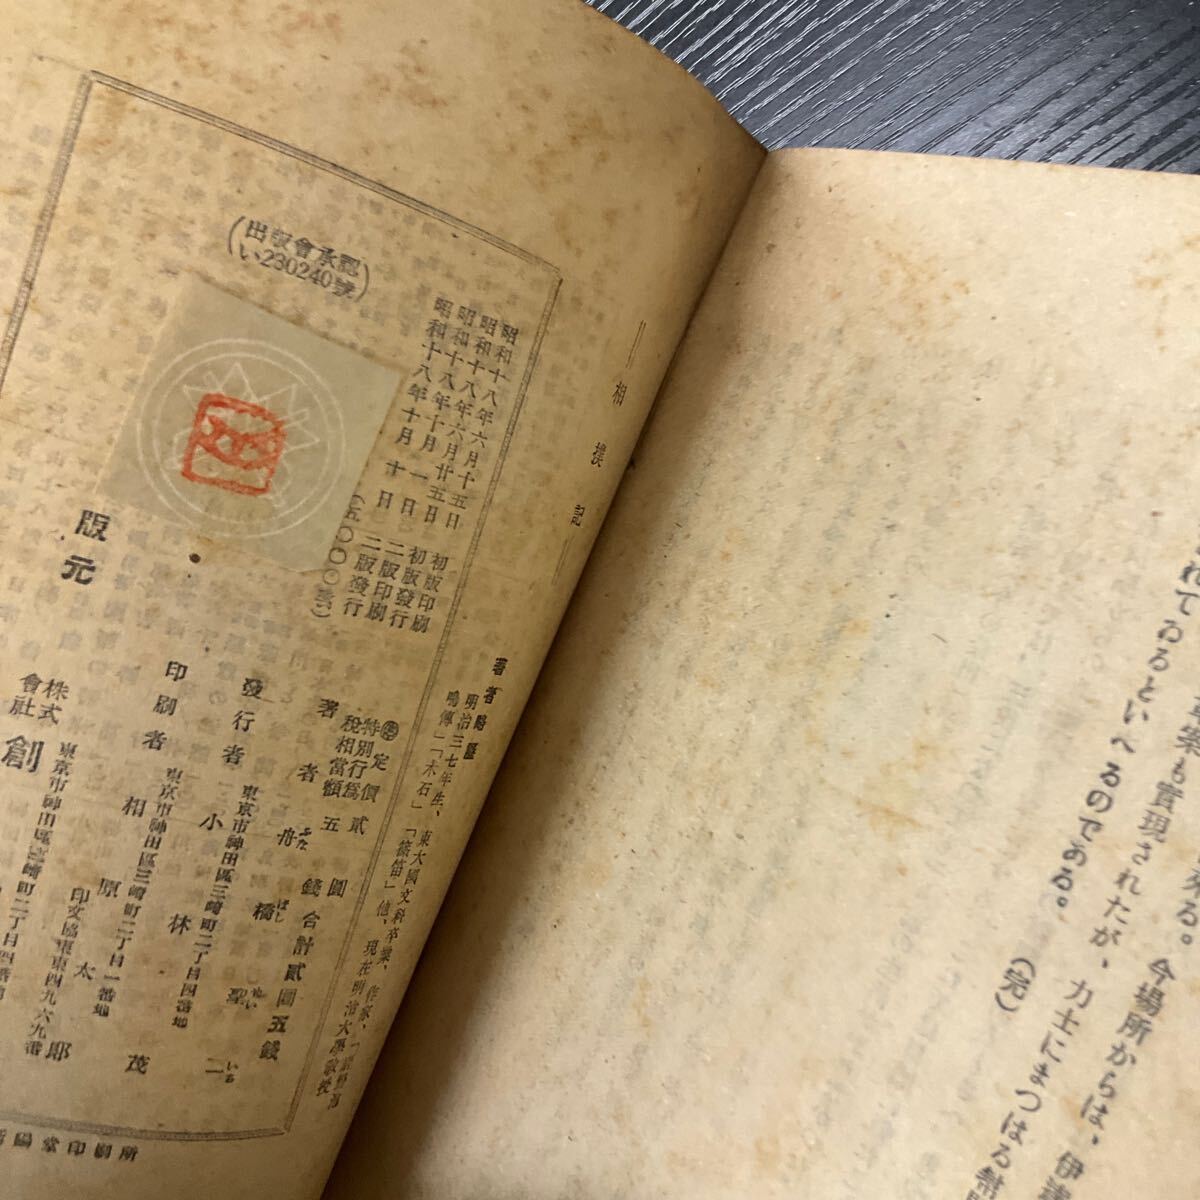 れてゐるといへるのである。 (完)
案も實現されたが、力士にまつはる
る。今場所からは、伊
=相撲記=
著者略歷
明治三七年生、東大國文科卒業、作家、
「木石」「篠笛」他、現在明治大學敎授
昭和十八年六月十五日 初版印刷
昭和十八年六月廿五日 初版發行
昭和十八年十月一日 二版印刷
昭和十八年十月十日 二版發行
(五〇〇〇部)
出版會承認
い230240號
定價貳圓
特別行爲
稅相當額五錢
合計貳圓五錢
著者 舟橋聖一
ふなばしせいいち
發行者 東京市神田區三崎町二丁目四番地
小林茂
印刷者 東京市神田區三崎町二丁目一番地
相原太郎
印文協東東四九六九番
版元
株式會社 創
東京市神田區三崎町二丁目四番地
陽堂印刷所